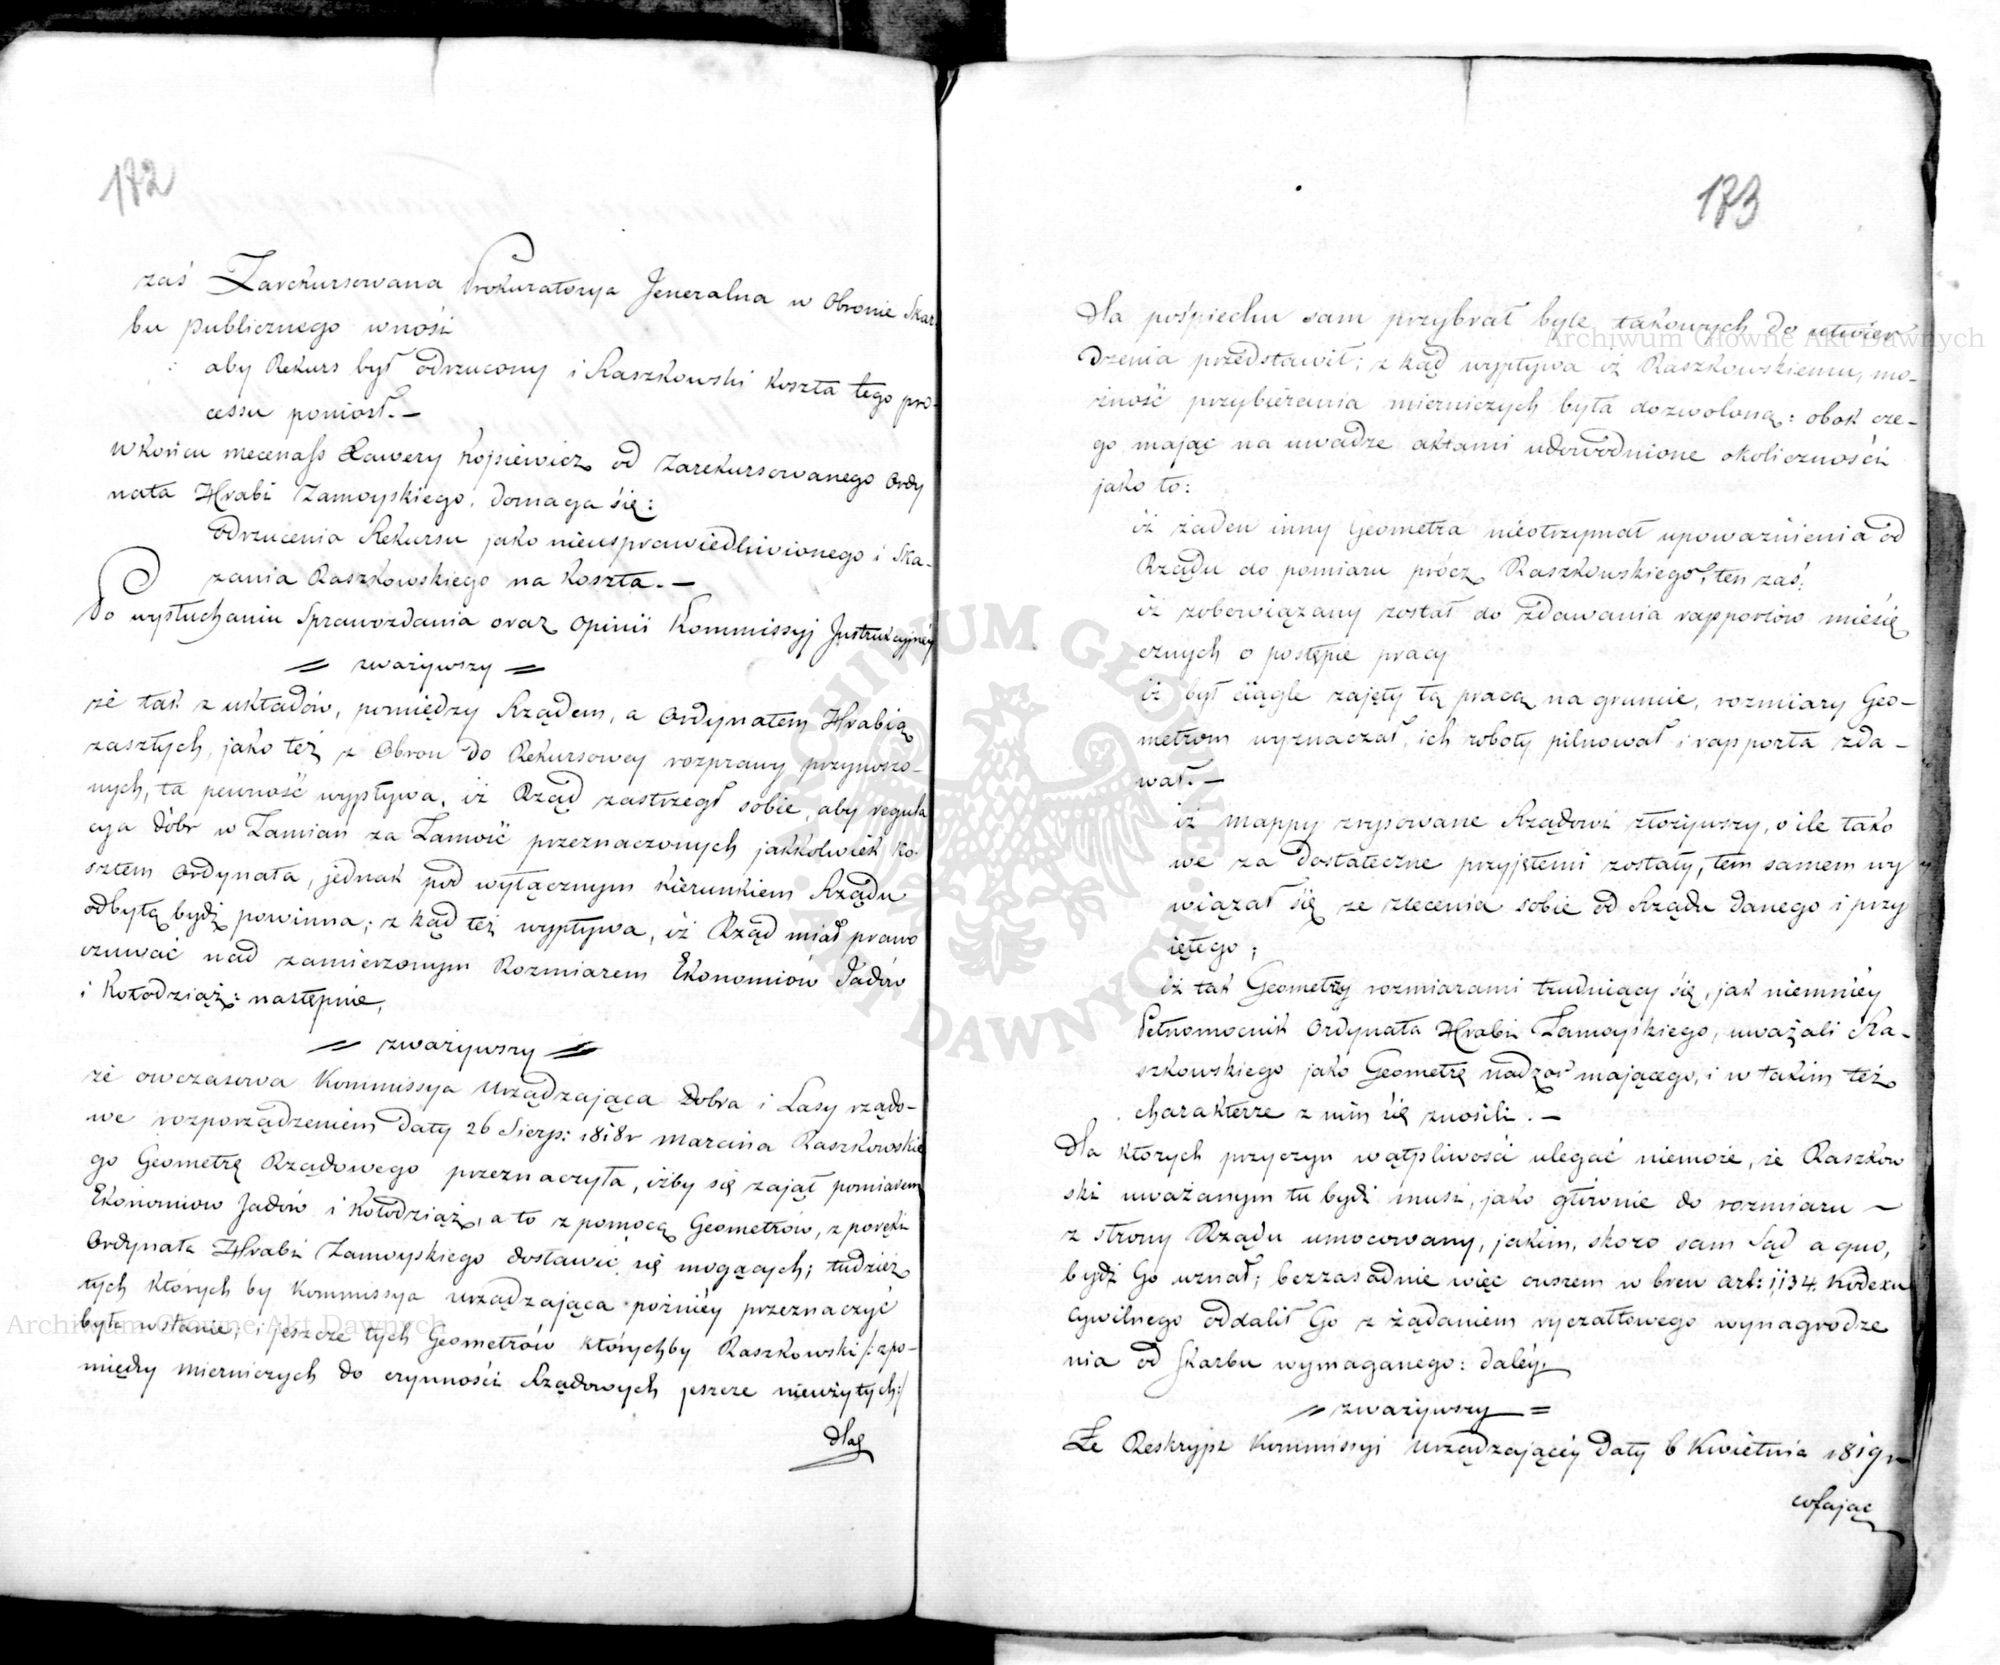 172
zaś Zarekursowana Prokuratorya Jeneralna w Obronie Skar-
bu publicznego wnosi
aby Rekurs był odrzucony i Raszkowski koszta tego pro-
cessu poniosł. —
wkońcu mecenass Xawery od Zarekursowanego Ordy
nata Hrabi Zamoyskiego, domaga się:
odrzucenia Rekursu jako nieusprawiedliwionego i Ska-
zania Raszkowskiego na koszta. —
Po wysłuchaniu Sprawozdania oraz Opinii Kommissyj Instrukcyjnéy
= zważywszy =
że tak z układów, pomiędzy Rządem, a Ordynatem Hrabią
zaszłych, jako też z Obron do Rekursowey rozprawy przynoszo-
nych, ta pewność wypływa, iż Rząd zastrzegł sobie, aby regula
cya dóbr w Zamian za Zamość przeznaczonych jakkolwiek ko-
sztem Ordynata, jednak pod wyłącznym kierunkiem Rządu
odbytą bydź powinna; z kąd też wypływa, iż Rząd miał prawo
czuwać nad zamierzonym Rozmiarem Ekonomiów Jadów
i Kołodziąż: następnie,
= zważywszy =
że owczasowa Kommissya Urządzająca Dobra i Lasy rządo-
we rozporządzeniem daty 26 Sierp: 1818 r Marcina Raszkowskie
go Geometrę Rządowego przeznaczyła, iżby się zajął pomiarem
Ekonomiow Jadów i Kołodziąż, a to z pomocą Geometrów, z poręki
Ordynata Hrabi Zamoyskiego dostawić się mogących; tudzież
tych których by Kommissya urządzająca poźniéy przeznaczyć
była wstanie; i jeszcze tych Geometrów którychby Raszkowski /: zpo-
między mierniczych do czynności Rządowych jeszcze nieużytych :/
dla
173
dla pośpiechu sam przybrał byle takowych do utwier
dzenia przedstawił; z kąd wypływa iż Raszkowskiemu, mo-
żność przybierania mierniczych była dozwoloną: obok cze-
go mając na uwadze aktami udowodnione okoliczności
jako to:
iż żaden inny Geometra nieotrzymał upoważnienia od
Rządu do pomiaru prócz Raszkowskiego, ten zaś:
iż zobowiązany został do zdawania rapportów miesię
cznych o postępie pracy
iż był ciągle zajęty tą pracą na gruncie, rozmiary Geo-
metrom wyznaczał, ich roboty pilnował i rapporta zda-
wał. —
iż mappy zrysowane Rządowi złożywszy, o ile tako
we za dostateczne przyjętemi zostały, tem samem wy
wiązał się ze zlecenia sobie od Rządu danego i przy
iętego;
iż tak Geometrzy rozmiarami trudniący się, jak niemniéy
Pełnomocnik Ordynata Hrabi Zamoyskiego, uważali Ra-
szkowskiego jako Geometrę nadzór mającego, i w takim też
charakterze z nim się znosili. —
Dla których przyczyn wątpliwości ulegać niemoże, że Raszkow
ski uważanym tu bydź musi, jako głównie do rozmiaru —
z strony Rządu umocowany, jakim, skoro sam Sąd a quo,
bydź Go uznał; bezzasadnie więc owszem w brew art: 1134. Kodexu
Cywilnego oddalił Go z żądaniem ryczałtowego wynagrodze
nia od Skarbu wymaganego: daléy.
= zważywszy =
Że Reskrypt Kommissyi Urządzającéy daty 6 Kwietnia 1819 r
cofając
Archiwum Główne Akt Dawnych
Archiwum Główne Akt Dawnych
ARCHIWUM GŁÓWNE AKT DAWNYCH